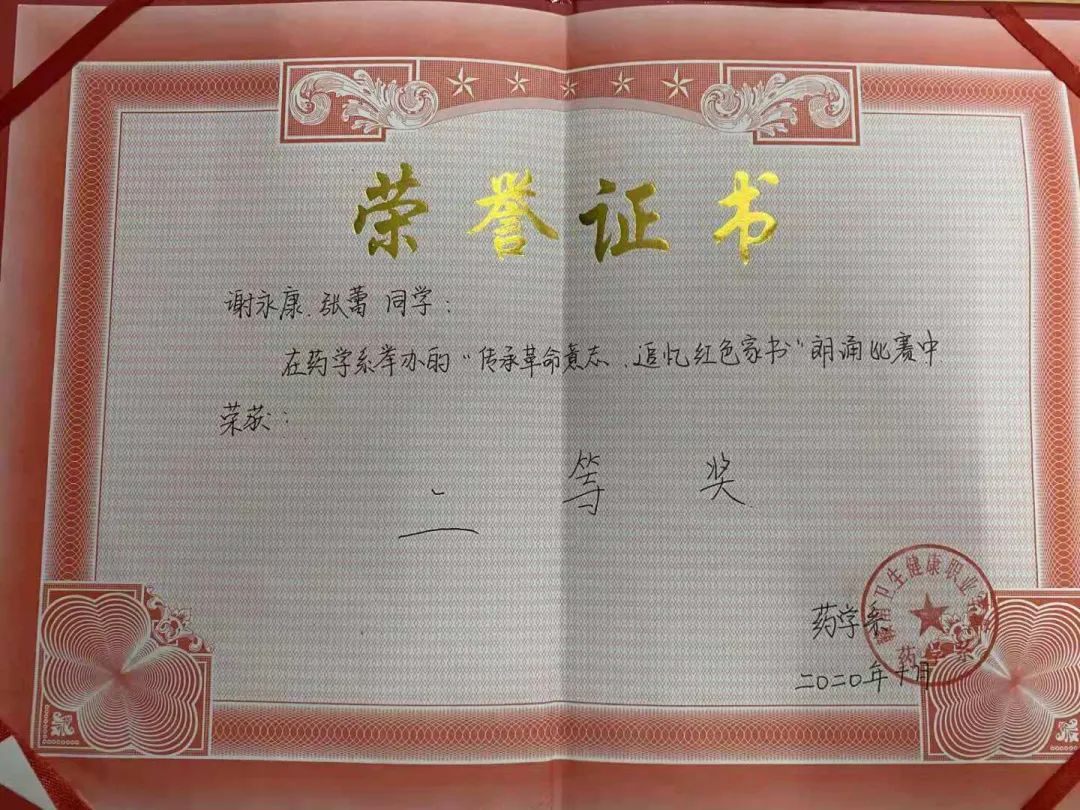 荣誉证书
谢永康、张蕾 同学:
在药学系举办的“传承革命意志、追忆红色家书”朗诵比赛中
荣获:
二 等 奖
卫生健康职业
药学系
药学系
二〇二〇年十月